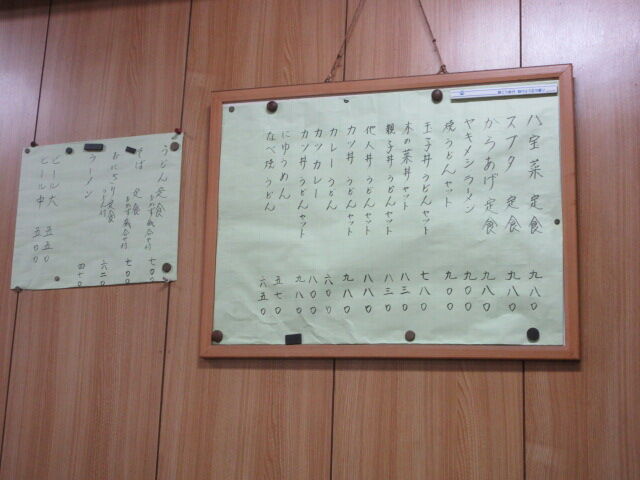 八宝菜 定食 九八〇
スブタ 定食 九八〇
からあげ定食 九八〇
ヤキメシラーメン 九〇〇
焼うどんセット 九〇〇
玉子丼うどんセット 七八〇
木の葉丼セット 八三〇
親子丼うどんセット 八三〇
他人丼うどんセット 八八〇
カツ丼 うどんセット 九八〇
カレーうどん 六〇〇
カツカレー 八〇〇
カツ丼うどんセット 九八〇
にゅうめん 五七〇
なべ焼うどん 六五〇
うどん定食 七〇〇
そば 定食 七〇〇
おにぎり定食 うどん付 六二〇
ラーメン
ビール大 五五〇
ビール中 五〇〇